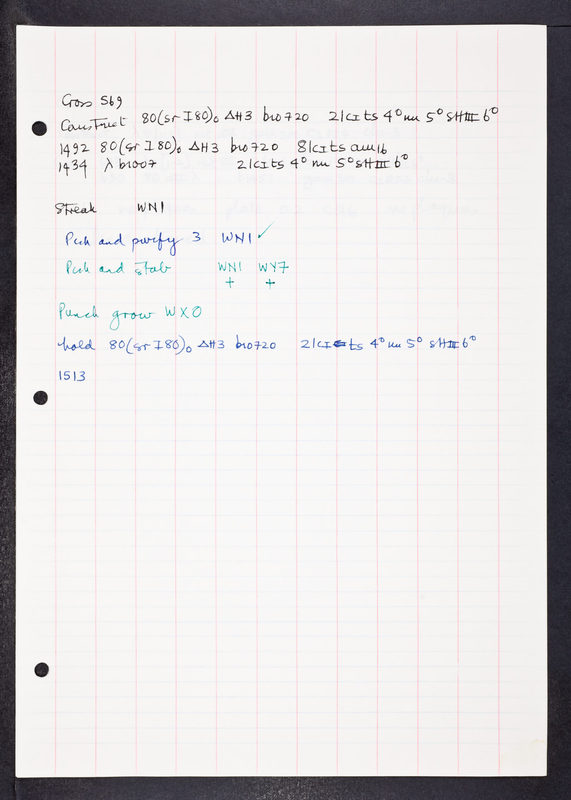 Cross 569
Construct 80(sr I80)₀ ΔH3 bio720 21cI ts 4⁰ nin 5⁰ sHIII 6⁰
1492 80(sr I80)₀ ΔH3 bio720 81cI ts am16
1434 λ b1007 21cI ts 4⁰ nin 5⁰ sHIII 6⁰
Streak WN1
Pick and purify 3 WN1 ✓
Pick and stab WN1 WY7
+ +
Punch grow WXO
hold 80(sr I80)₀ ΔH3 bio720 21cI ts 4⁰ nin 5⁰ sHIII 6⁰
1513